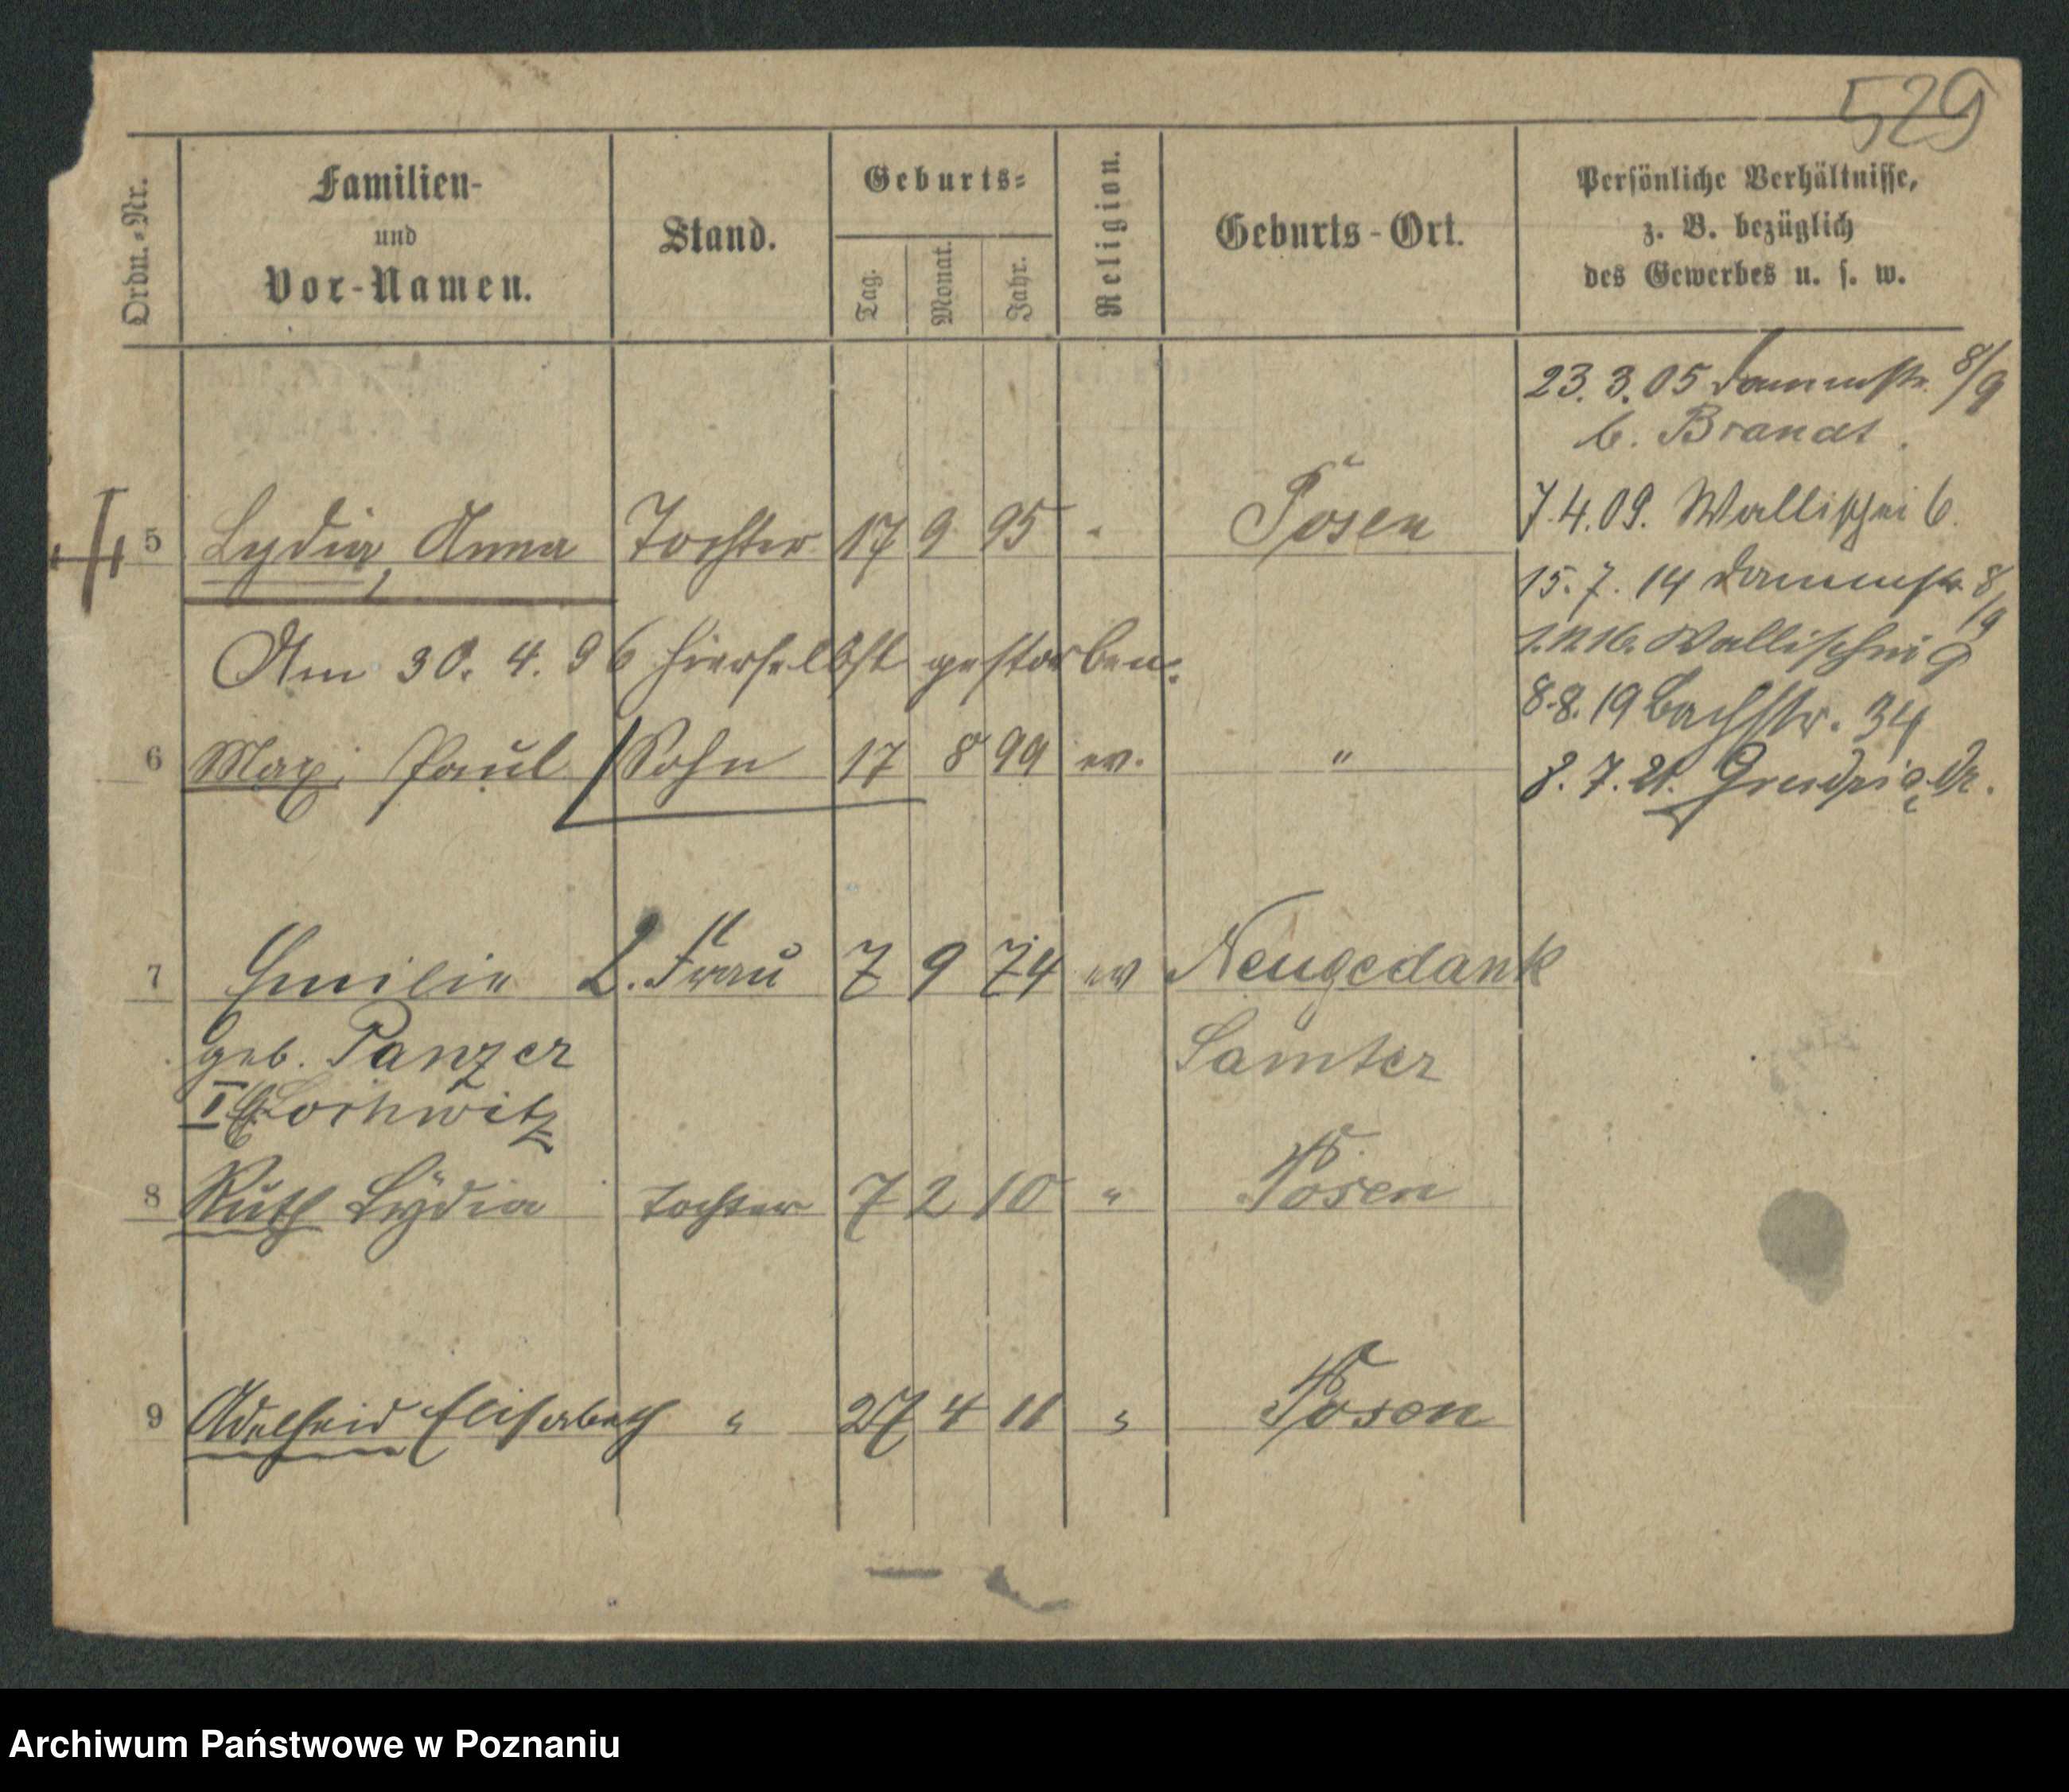 529
Ordn.-Nr. Familien- und Vor-Namen. Stand. Geburts- Tag. Monat. Jahr. Religion. Geburts-Ort. Persönliche Verhältnisse, z. B. bezüglich des Gewerbes u. s. w.
23. 3. 05 Dammstr. 8/9
b. Brandt.
5 Lydia, Anna Tochter 17 9 95 " Posen
7. 4. 09. Wallischei 6.
15. 7. 14 Dammstr. 8/9
Am 30. 4. 96 hierselbst gestorben.
Wallischei 9
8. 8. 19 Bachstr. 34
6 Max, Paul Sohn 17 8 99 ev. "
8. 7. 21.
7 Emilie 2. Frau 7 9 74 ev Neugedank
geb. Panzer Samter
I
8 Ruth Lydia Tochter 7 2 10 " Posen
9 Adelheid Elisabeth " 27 4 11 " Posen
Archiwum Państwowe w Poznaniu